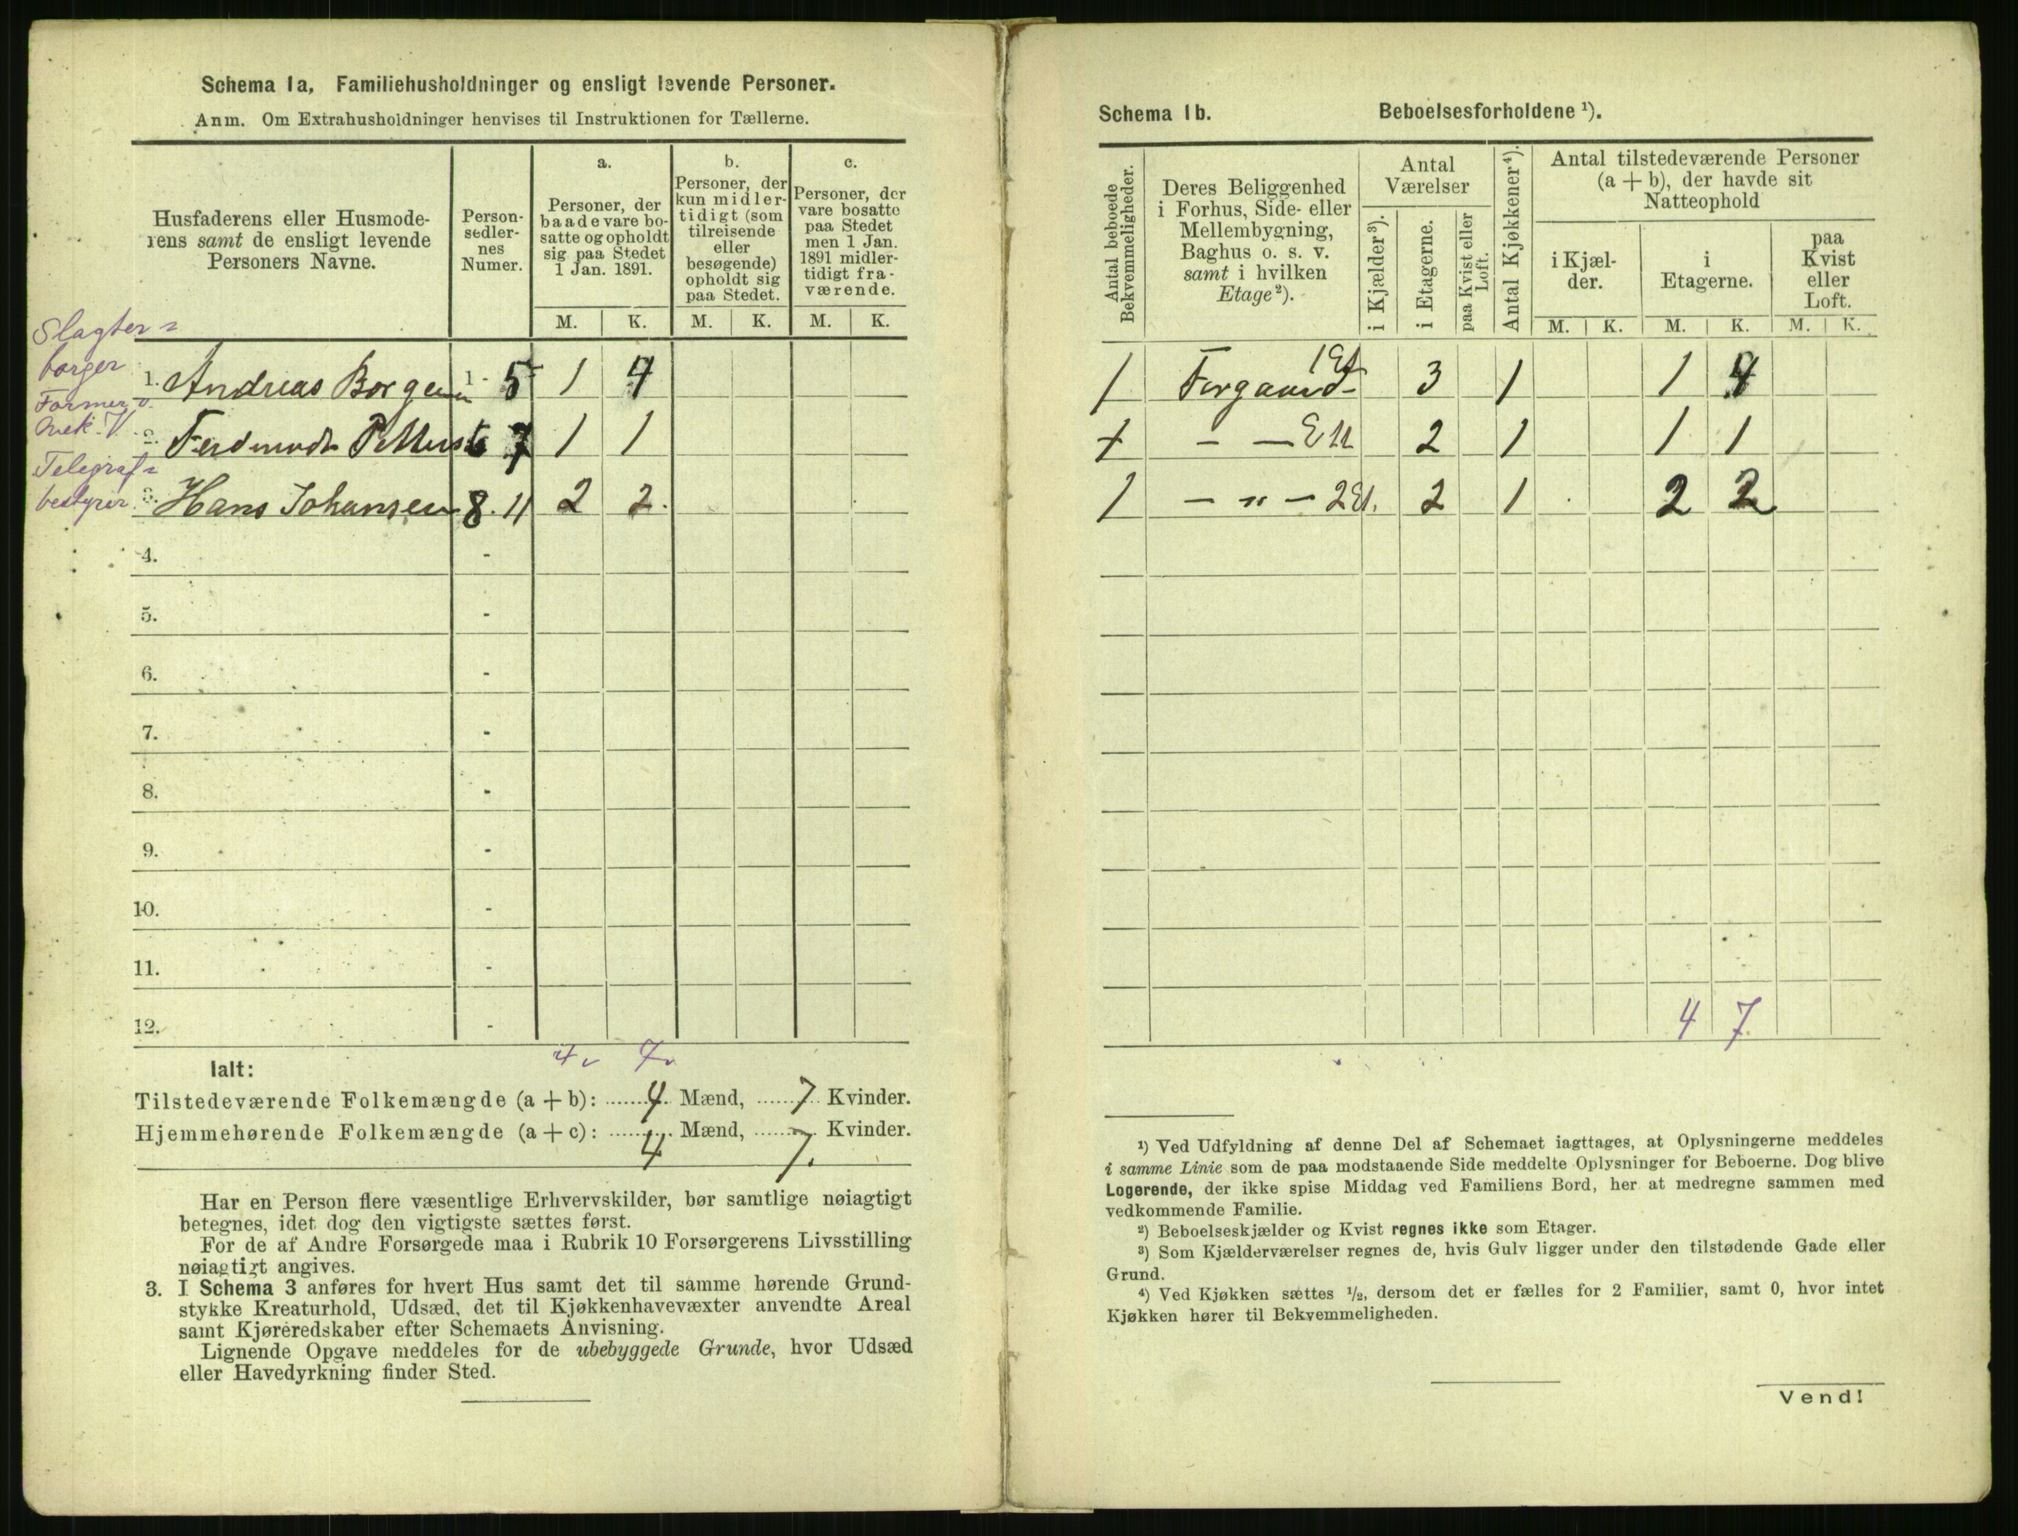 Schema 1a, Familiehusholdninger og ensligt levende Personer.
Anm. Om Extrahusholdninger henvises til Instruktionen for Tællerne.
Husfaderens eller Husmode-
rens samt de ensligt levende
Personers Navne.
Person-
sedler-
nes
Numer.
a.
Personer, der
baade vare bo-
satte og opholdt
sig paa Stedet
1 Jan. 1891.
b.
Personer, der
kun midler-
tidigt (som
tilreisende
eller
besøgende)
opholdt sig
paa Stedet.
c.
Personer, der
vare bosatte
paa Stedet
men 1 Jan.
1891 midler-
tidigt fra-
værende.
M. K. M. K. M. K.
Slagter=
borger
1. Andreas Borgen 1 - 5 1 4
Former v.
mek. V.
2. Petters 6 7 1 1
Telegraf=
bestyrer
3. Hans Johansen 8 - 11 2 2
4. -
5. -
6. -
7. -
8. -
9. -
10. -
11. -
12. -
4 7
Ialt:
Tilstedeværende Folkemængde (a + b): 4 Mænd, 7 Kvinder.
Hjemmehørende Folkemængde (a + c): 4 Mænd, 7 Kvinder.
Har en Person flere væsentlige Erhvervskilder, bør samtlige nøiagtigt
betegnes, idet dog den vigtigste sættes først.
For de af Andre Forsørgede maa i Rubrik 10 Forsørgerens Livsstilling
nøiagtigt angives.
3. I Schema 3 anføres for hvert Hus samt det til samme hørende Grund-
stykke Kreaturhold, Udsæd, det til Kjøkkenhavevæxter anvendte Areal
samt Kjøreredskaber efter Schemaets Anvisning.
Lignende Opgave meddeles for de ubebyggede Grunde, hvor Udsæd
eller Havedyrkning finder Sted.
Schema 1b. Beboelsesforholdene ¹).
Antal beboede
Bekvemmeligheder.
Deres Beliggenhed
i Forhus, Side- eller
Mellembygning,
Baghus o. s. v.
samt i hvilken
Etage²).
Antal
Værelser
i Kjælder³).
i Etagerne.
paa Kvist eller
Loft.
Antal Kjøkkener⁴).
Antal tilstedeværende Personer
(a + b), der havde sit
Natteophold
i Kjæl-
der.
i
Etagerne.
paa
Kvist
eller
Loft.
M. K. M. K. M. K.
1 Forgaard 1 Et 3 1 1 4
1 — — 2 1 1 1
1 — „ — 2 Et. 2 1 2 2
4 7
¹) Ved Udfyldning af denne Del af Schemaet iagttages, at Oplysningerne meddeles
i samme Linie som de paa modstaaende Side meddelte Oplysninger for Beboerne. Dog blive
Logerende, der ikke spise Middag ved Familiens Bord, her at medregne sammen med
vedkommende Familie.
²) Beboelseskjælder og Kvist regnes ikke som Etager.
³) Som Kjælderværelser regnes de, hvis Gulv ligger under den tilstødende Gade eller
Grund.
⁴) Ved Kjøkken sættes ½, dersom det er fælles for 2 Familier, samt 0, hvor intet
Kjøkken hører til Bekvemmeligheden.
Vend!